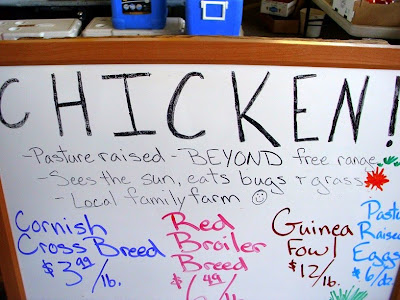 CHICKEN!
-Pasture raised - BEYOND free range
-Sees the sun, eats bugs + grass
- Local family farm ☺
Cornish
Cross Breed
$3.99/lb.
Red
Broiler
Breed
$6.49/lb.
Guinea
Fowl
$12/lb.
Pastu
Raised
Eggs
$6/do